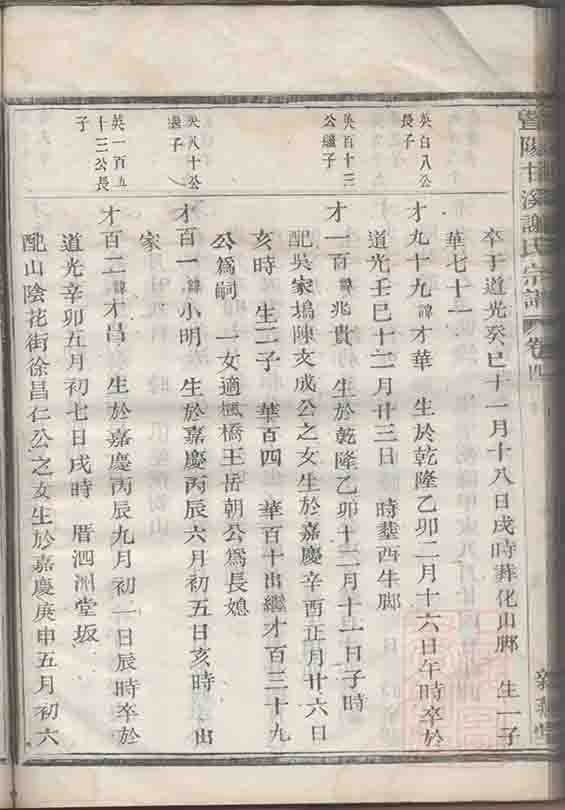 暨陽 溪謝氏宗譜 卷四
卒于道光癸巳十一月十八日戌時葬化山腳 生一子
華七十一
吳百八公長子
才九十九諱才華 生於乾隆乙卯二月十六日午時卒於
道光壬巳十二月廿三日 時塟西牛腳
吳百十三公繼子
才一百諱兆貴 生於乾隆乙卯十二月十二日子時
配吳家塢陳支成公之女生於嘉慶辛酉正月廿六日
亥時 生二子 華百四 華百十出繼才百三十九
公爲嗣 一女適楓橋王岳朝公爲長媳
吳八十公 子
才百一諱小明 生於嘉慶丙辰六月初五日亥時 出
家
英一百五十三公長子
才百二諱才昌 生於嘉慶丙辰九月初一日辰時卒於
道光辛卯五月初七日戌時 厝泗洲堂坂
配山陰花街徐昌仁公之女生於嘉慶庚申五月初六